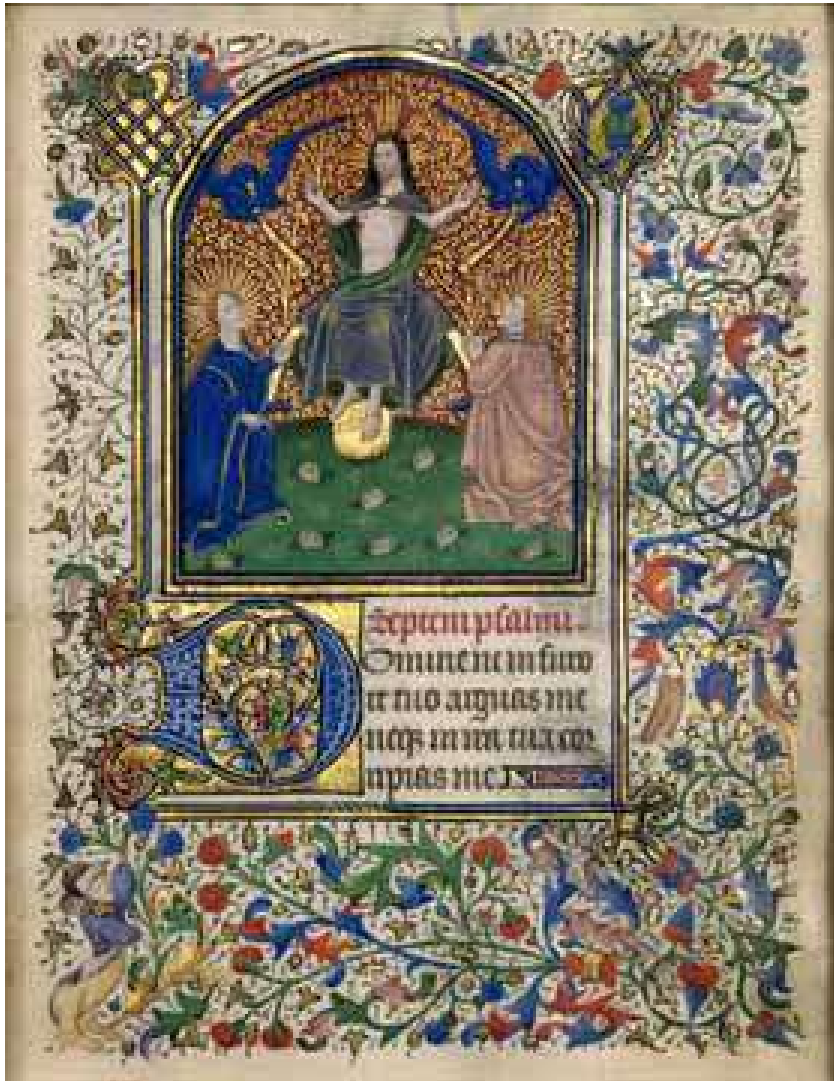 Septem psalmi.
Domine ne in furo
re tuo arguas me
neqȝ in ira tua cor
ripias me.